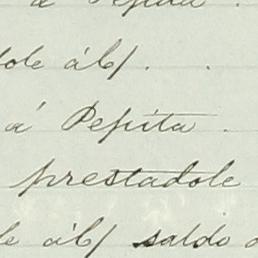 á Pepita .
dole áb/ . .
á Pepita .
prestadole
le áb/ saldo